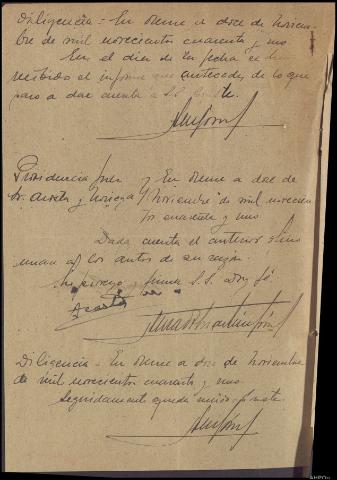 Diligencia = En Orense a doce de Noviem-
bre de mil novecientos cuarenta y uno
En el día de la fecha se ha
recibido el informe que antecede, de lo que
paso a dar cuenta a S.S.
Providencia Juez y En Orense a doce de
Sr. Acosta y Noriega Noviembre de mil novecien-
tos cuarenta y uno
Dada cuenta el anterior
unan a los autos de su razón.
Lo proveyó y firma S.S. Doy fé.
Acosta
Diligencia = En Orense a doce de Noviembre
de mil novecientos cuarenta y uno
Seguidamente queda unido